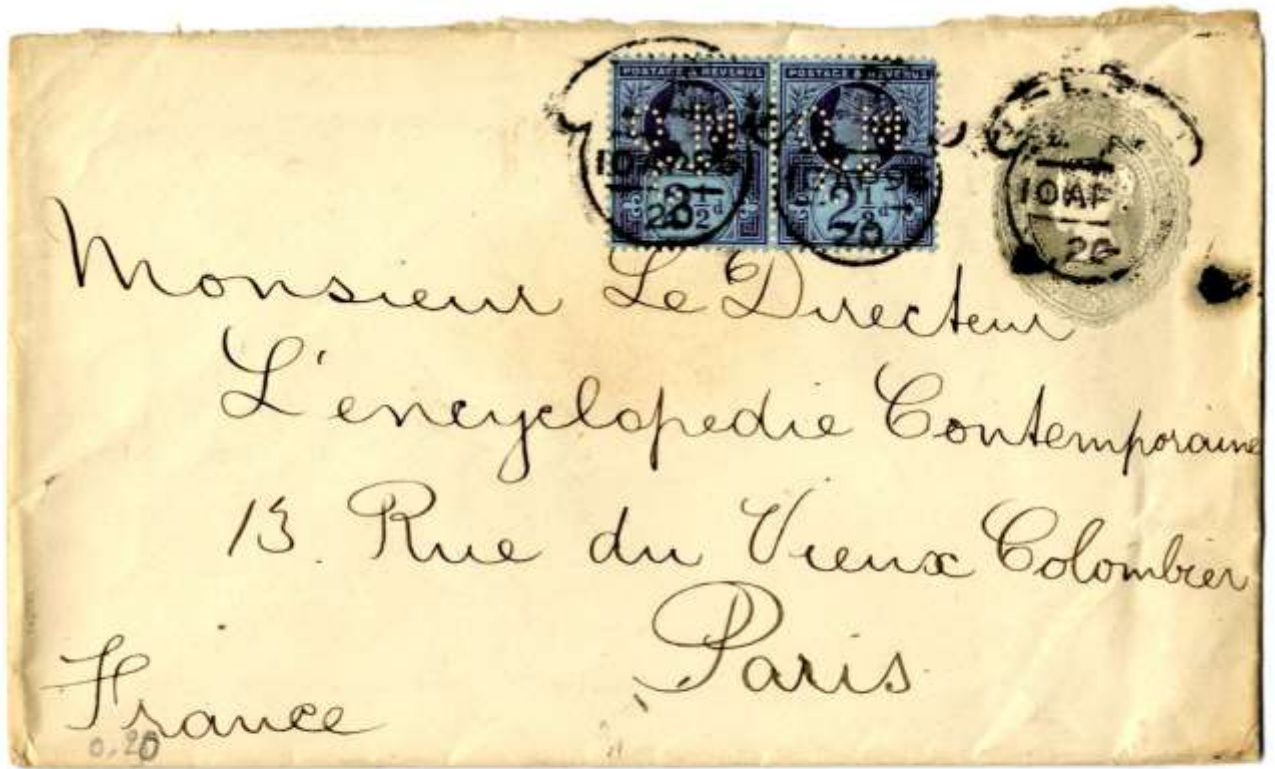 POSTAGE & REVENUE POSTAGE & REVENUE
10 AP 96
20
2½d 2½d
10 AP
20
Monsieur Le Directeur
L'encyclopedie Contemporaine
13. Rue du Vieux Colombier
Paris
France
0.20